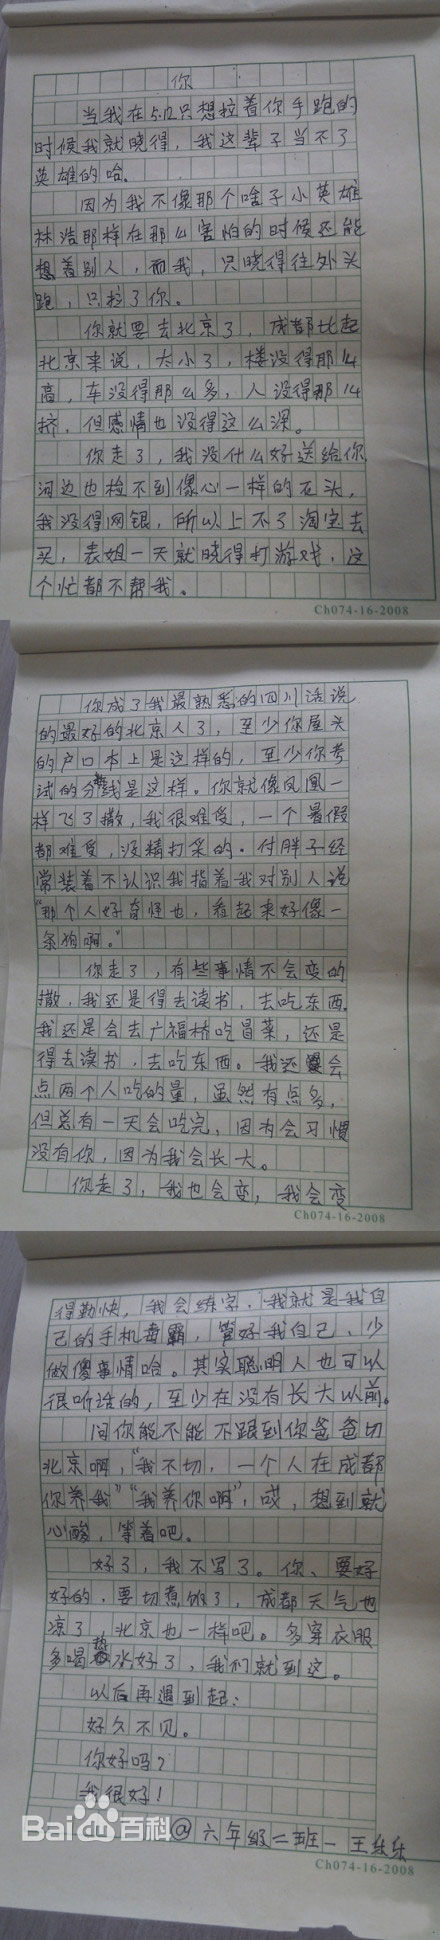 你
当我在5.12只想拉着你手跑的
时候我就晓得，我这辈子当不了
英雄的哈。
因为我不像那个啥子小英雄
林浩那样在那么害怕的时候还能
想着别人，而我，只晓得往外头
跑，只拉了你。
你就要去北京了，成都比起
北京来说，太小了，楼没得那么
高，车没得那么多，人没得那么
挤，但感情也没得这么深。
你走了，我没什么好送给你，
河边也检不到像心一样的石头，
我没得网银，所以上不了淘宝去
买，表姐一天就晓得打游戏，这
个忙都不帮我。
Ch074-16-2008
你成了我最熟悉的四川话说
的最好的北京人了，至少你屋头
的户口本上是这样的，至少你考
试的分数线是这样。你就像凤凰一
样飞了撒，我很难受，一个暑假
都难受，没精打采的。付胖子经
常装着不认识我指着我对别人说
“那个人好奇怪也，看起来好像一
条狗啊。”
你走了，有些事情不会变的
撒，我还是得去读书，去吃东西。
我还是会去广福桥吃冒菜，还是
得去读书，去吃东西。我还会
点两个人吃的量，虽然有点多，
但总有一天会吃完，因为会习惯
没有你，因为我会长大。
你走了，我也会变，我会变
Ch074-16-2008
得勤快，我会练字，我就是我自
己的手机毒霸，管好我自己、少
做傻事情哈。其实聪明人也可以
很听话的，至少在没有长大以前。
问你能不能不跟到你爸爸切
北京啊，“我不切，一个人在成都
你养我”“我养你啊”，哎，想到就
心酸，等着吧。
好了，我不写了。你、要好
好的，要切煮饭了，成都天气也
凉了，北京也一样吧。多穿衣服
多喝热水好了，我们就到这。
以后再遇到起：
好久不见。
你好吗？
我很好！
@六年级二班一王乐乐
Ch074-16-2008
Bai百科